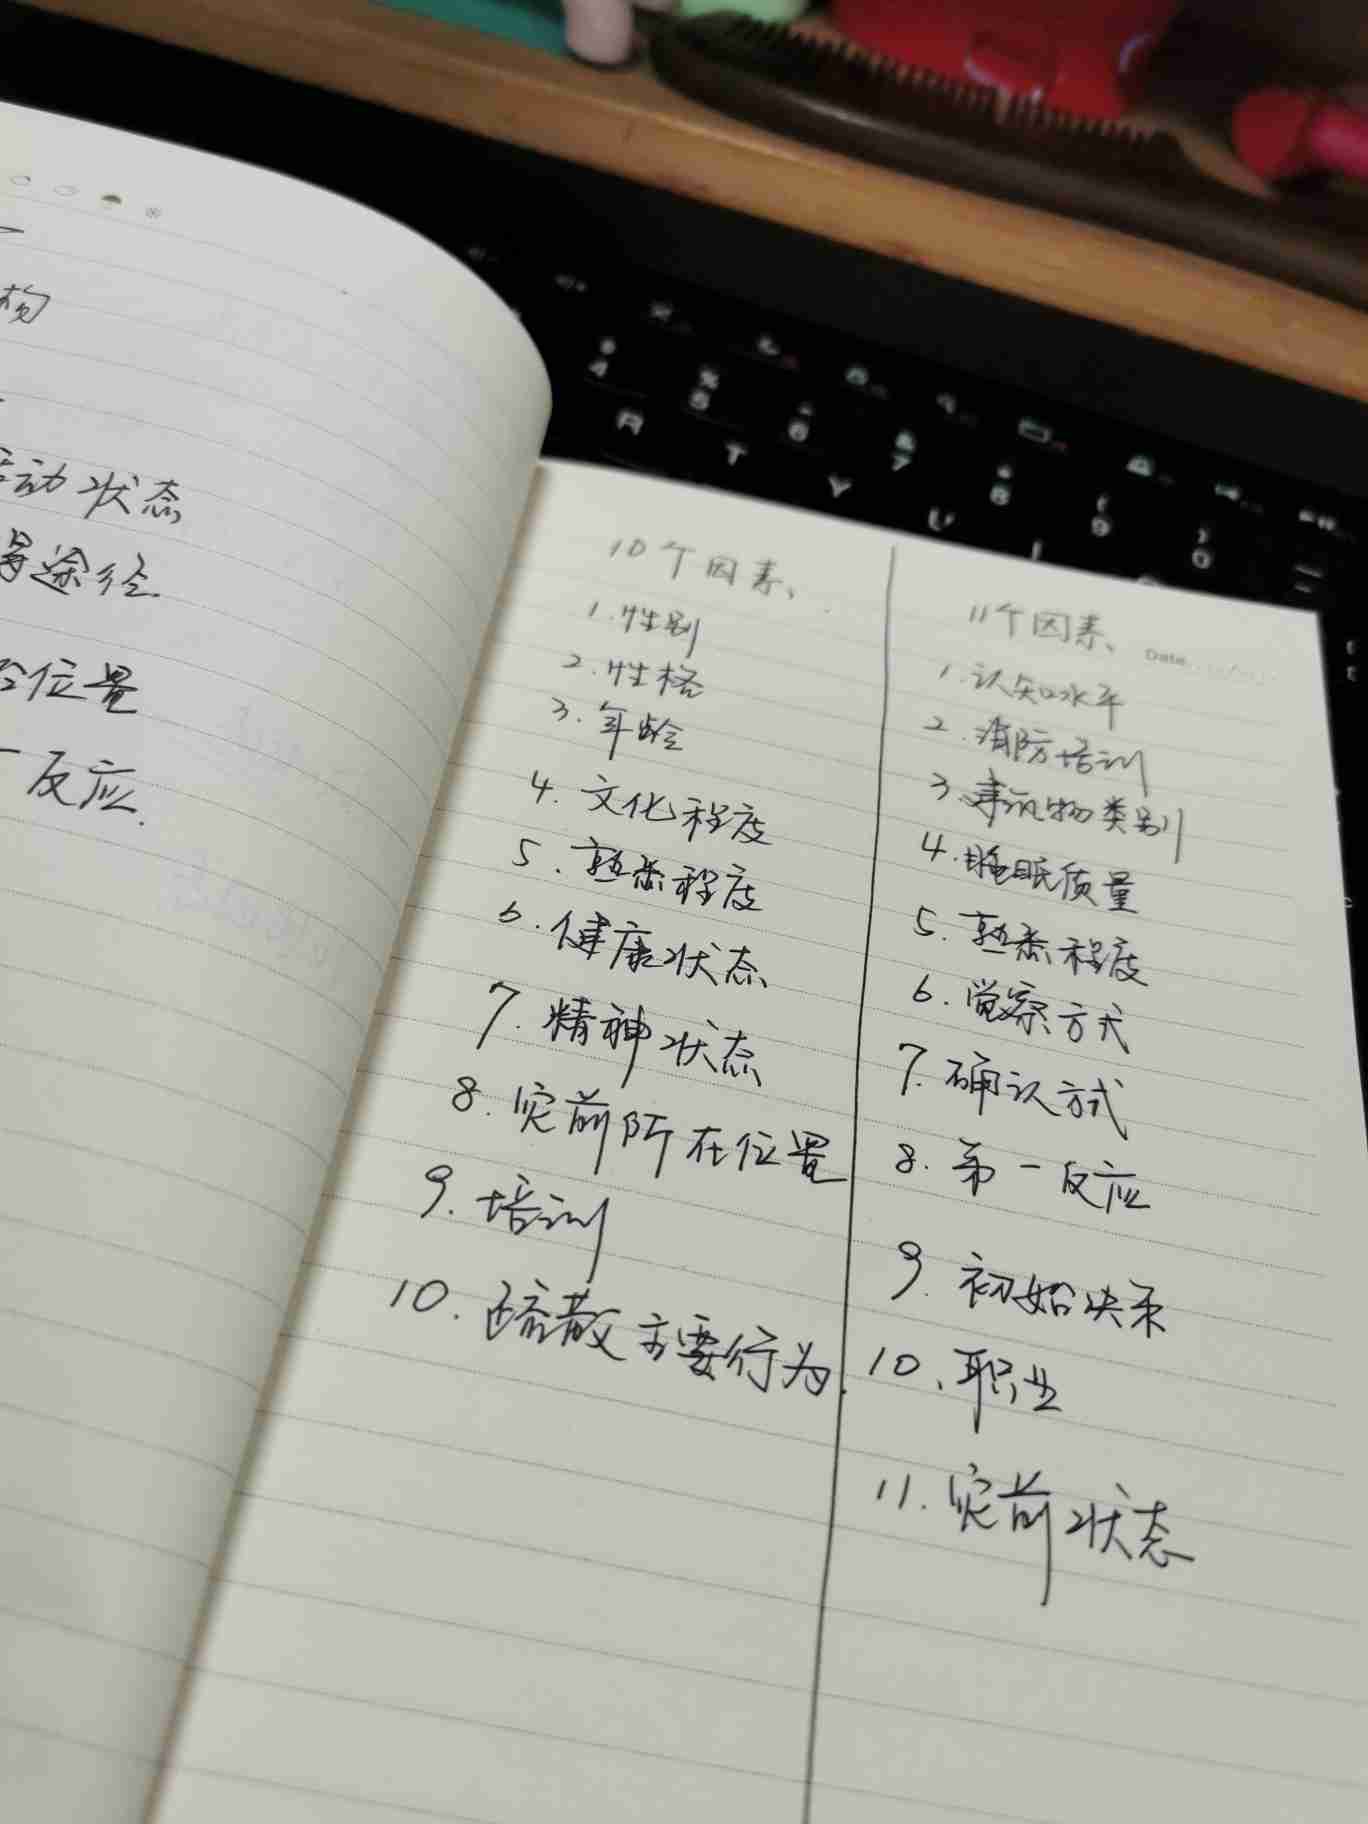 构
动状态
途径
位置
一反应.
10个因素、
1.性别
2.性格
3.年龄
4.文化程度
5.熟悉程度
6.健康状态
7.精神状态
8.灾前所在位置
9.培训
10.疏散主要行为.
11个因素、
Date
1.认知水平
2.消防培训
3.建筑物类别
4.睡眠质量
5.熟悉程度
6.觉察方式
7.确认方式
8.第一反应
9.初始决策
10、职业
11.灾前状态
4
5
6
7
8
9
0
R
T
Y
U
I